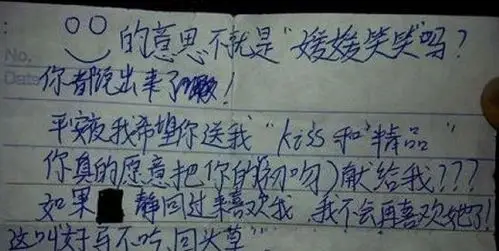 No.
Date
的意思不就是"媛媛笑笑"吗?
你都说出来了!
平安夜我希望你送我"kiss和精品"
你真的愿意把你的(初吻)献给我???
如果 静回过来喜欢我 我不会再喜欢她了!
这叫好马不吃回头草"